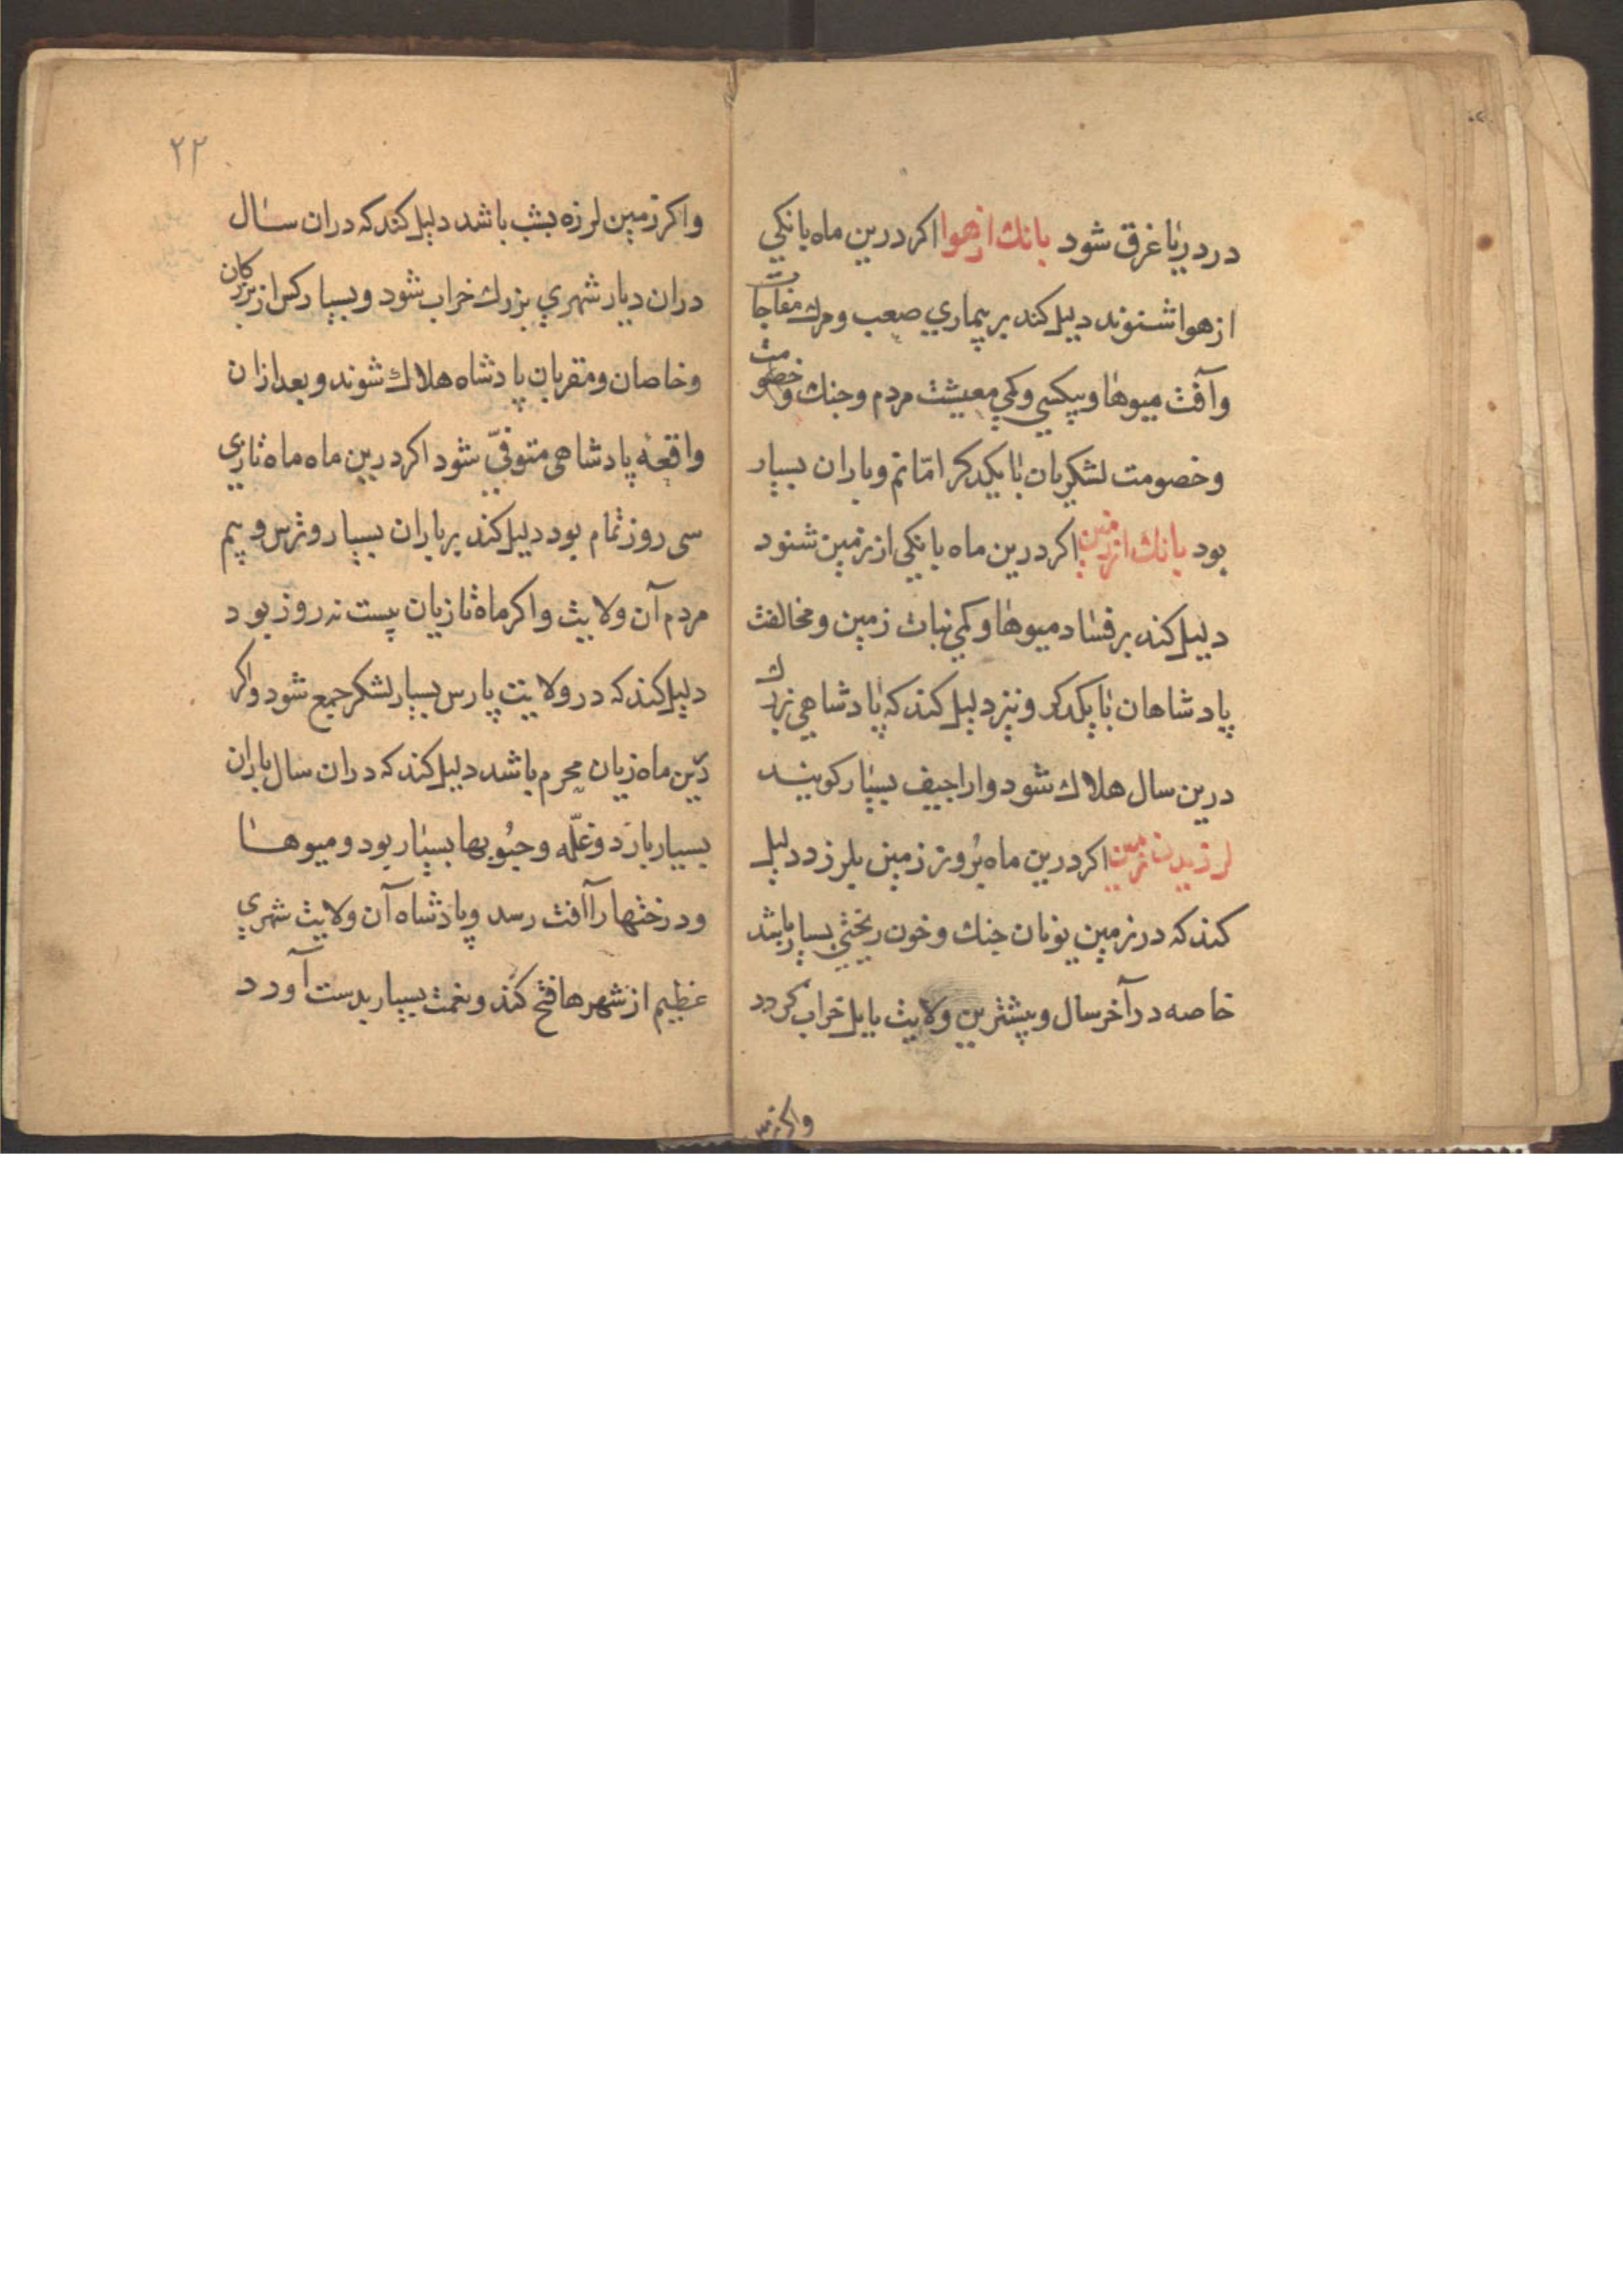 در دریا غرق شود بانك از هوا اکر درین ماه بانکي
از هوا شنوند دلیل کند بر بیماري صعب و مرك مفاجات
وآفت میوها و بیکسي و کمي معیشت مردم و جنك و خصومت
و خصومت لشکریان با یکدکر امّا نم و باران بسیار
بود بانك از زمین اکر درین ماه بانکي از زمین شنود
دلیل کند بر فساد میوها و کمي نبات زمین و مخالفت
پادشاهان با یکدکر و نیز دلیل کند که پادشاهي بزرك
درین سال هلاك شود و اراجیف بسیار کویند
لرزیدن زمین اکر درین ماه بُروز زمین بلرزد دلیل
کند که در زمین یونان جنك و خون ریختي بسیار باشد
خاصه در آخر سال و بیشترین ولایت بابل خراب کردد
واکر زمین
۲۲
واکر زمین لرزه بشب باشد دلیل کند که دران سال
دران دیار شهري بزرك خراب شود و بسیار کس از بزرکان
وخاصان و مقربان پادشاه هلاك شوند و بعد ازان
واقعهٔ پادشاهی متوفّي شود اکر درین ماه ماه تازي
سی روز تمام بود دلیل کند بر باران بسیار و ترس و بیم
مردم آن ولایت واکر ماه تازیان بیست نه روز بود
دلیل کند که در ولایت پارس بسیار لشکر جمع شود واکر
درین ماه زیان محرم باشد دلیل کند که دران سال باران
بسیار بارَد و غلّه و حبُوبها بسیار بود و میوها
و درختها را آفت رسد و پادشاه آن ولایت شهري
عظیم از شهرها فتح کند و نعمت بسیار بدست آورد